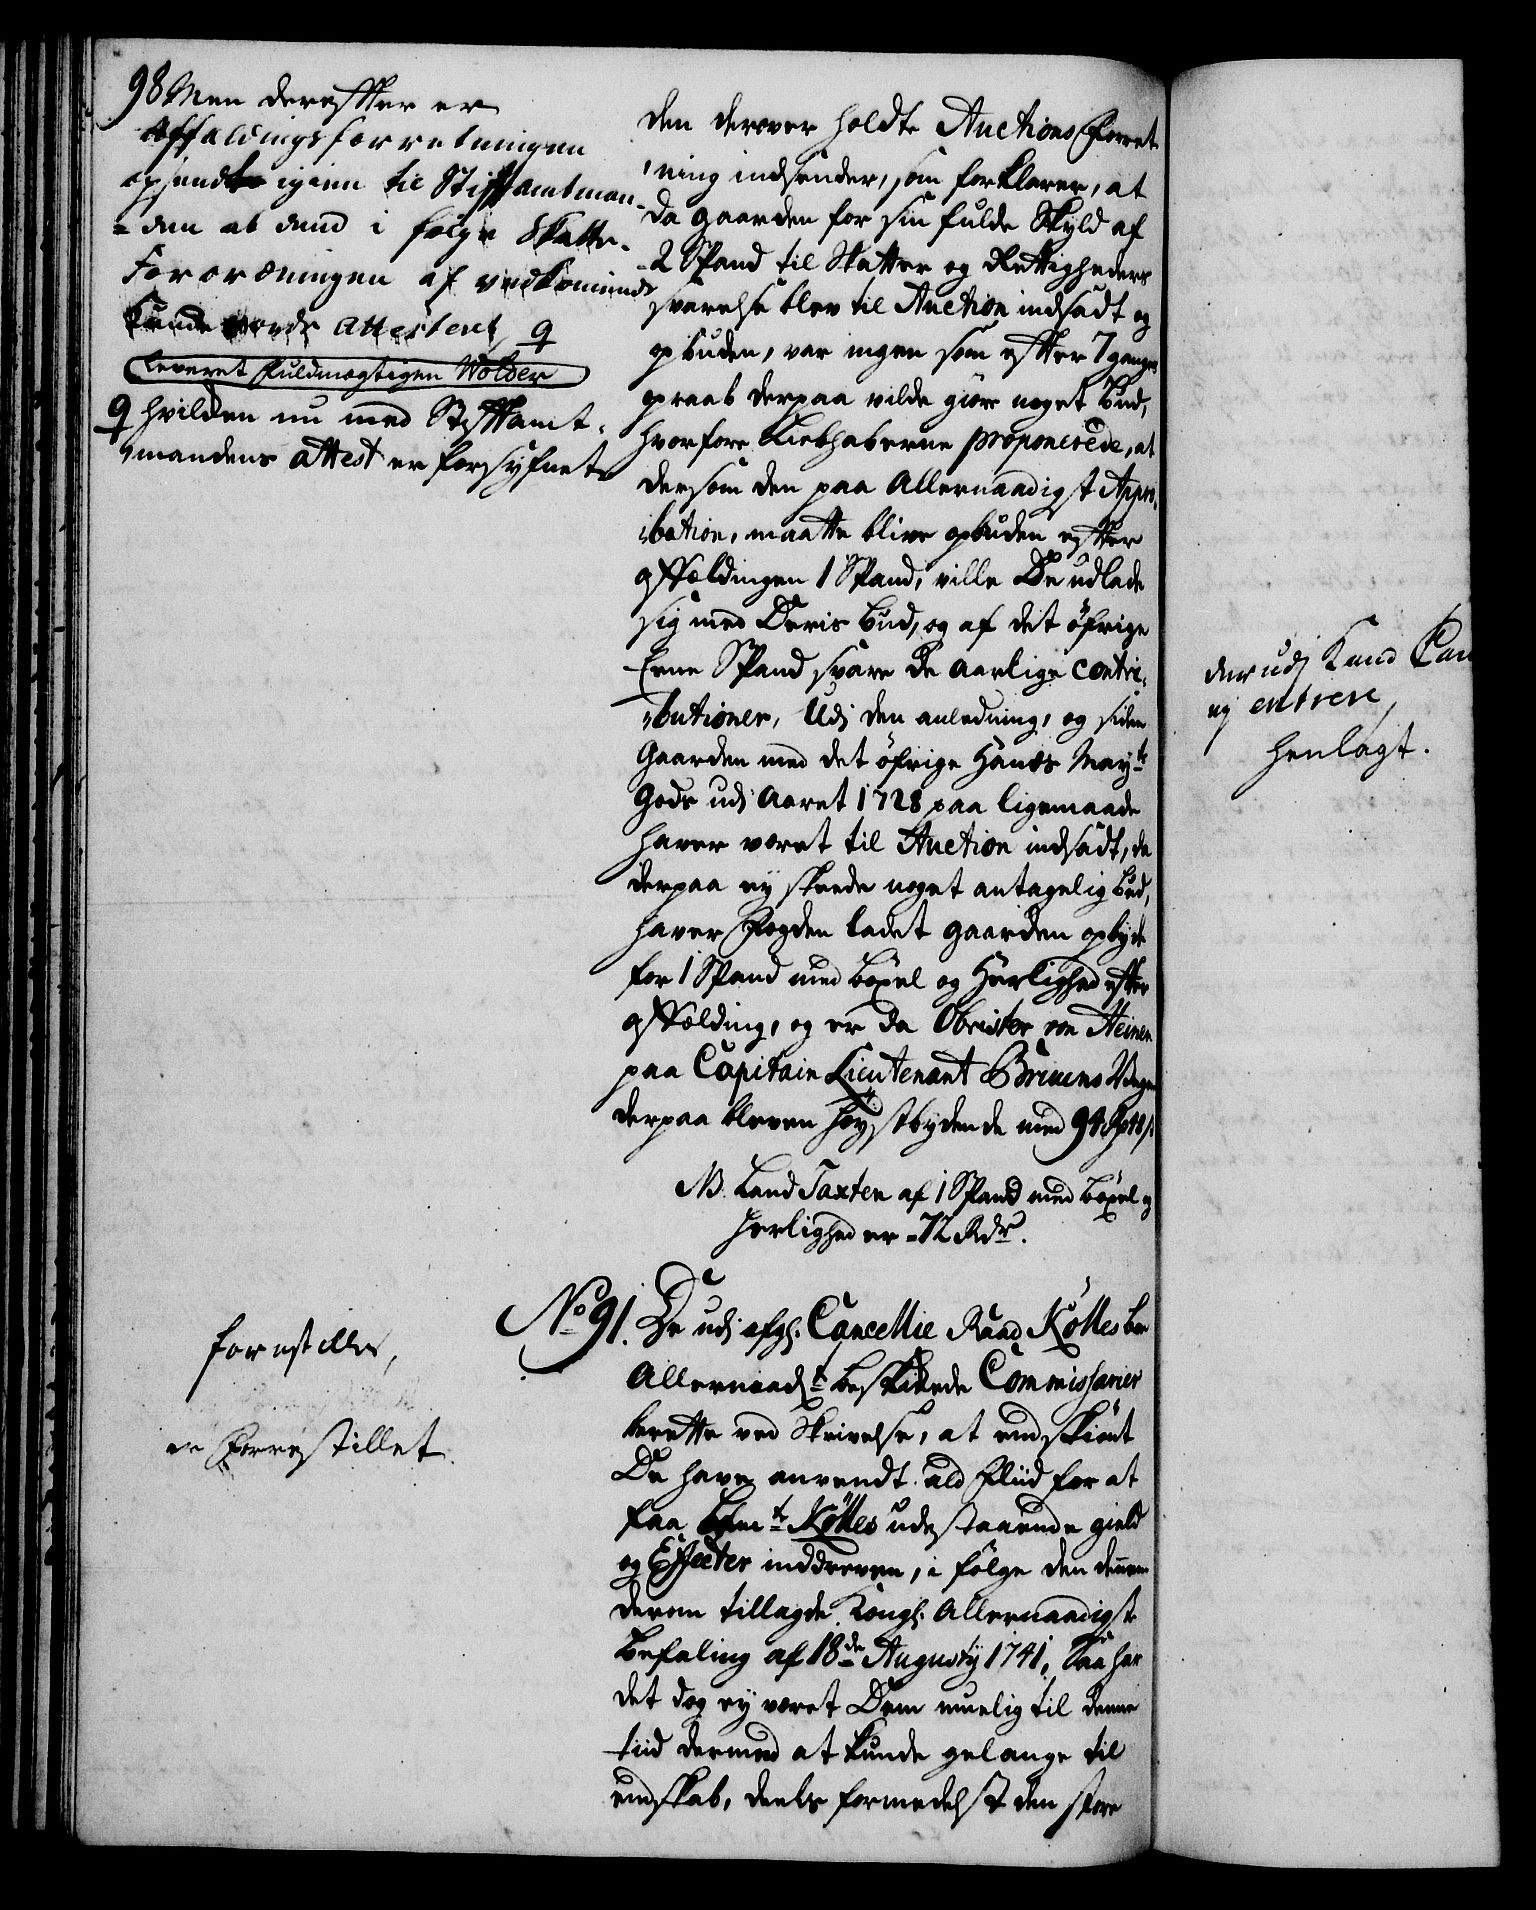 98 Men derefter er
Affældingsforretningen
opsendt igien til Stiftamtman-
-den at dend i følge Skatte-
Forordningen af vedkommende
kunde vorde attesteret, 9
Leveret Fuldmægtigen Wolder
9 hvilcken nu med Stiftamt-
mandens attest er forsyfnet
den derover holdte Auctions Forret-
ning indsender, som forklarer, at
da gaarden for sin fulde Skyld af
2 Spand til Skatter og Rettigheders
svarelse blev til Auction indsadt og
opbuden, var ingen som efter 7 ganges
opraab derpaa vilde giøre noget Bud,
hvorfore Liebhaberne proponerede, at
dersom den paa Allernaadigst Appro-
bation, maatte blive opbuden efter
affældingen 1 Spand, ville De udlade
sig med Deris Bud, og af det öfrige
Eene Spand svare De aarlige contri-
butioner, Udj den anledning, og siden
Gaarden med det öfrige Hanns Mayts
Gods udj Aaret 1728 paa ligemaade
haver været til Auction indsadt, da
derpaa ey skeede noget antagelig Bud,
haver Fogden ladet gaarden opbyde
for 1 Spand med Böxel og Herlighed efter
affælding, og er da Obrister von Heinen
paa Capitain Lieutenant Bruuns Vegne
derpaa bleven høystbydende med 94
NB. Land Taxten af 1 Spand med Böxel og
herlighed er - 72 Rdr.
No 91. De udj afg: Cancellie Raad Köttes boe
Allernaadst beskikede Commissarier
berette ved Skrivelse, at endskiönt
De have anvendt ald Fliid for at
faa bemte Köttes udestaaende gield
og Effecter inddreven, i følge den dennem
derom tillagde Kongl: Allernaadigste
Befaling af 18de Augusty 1741, Saa har
det dog ey været Dem muelig til denne
tiid dermed at kunde gelange til
endskab, deels formedelst den store
forestilles,
er Forrestillet
der udj Kand
ey entrere,
henlagt.